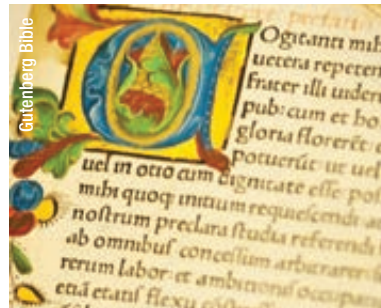 Gutenberg Bible
COgitanti mihi
uetera repeten
frater illi uideri
pub: cum et ho
gloria florerēt: e
potuerūt: ut uel
uel in otio cum dignitate esse pos
mihi quoq; initium requiescendi a
nostrum preclara studia referendi
ab omnibus concessum arbitrarer:
rerum labor: et ambitionis occupa
etiā etatis flexu